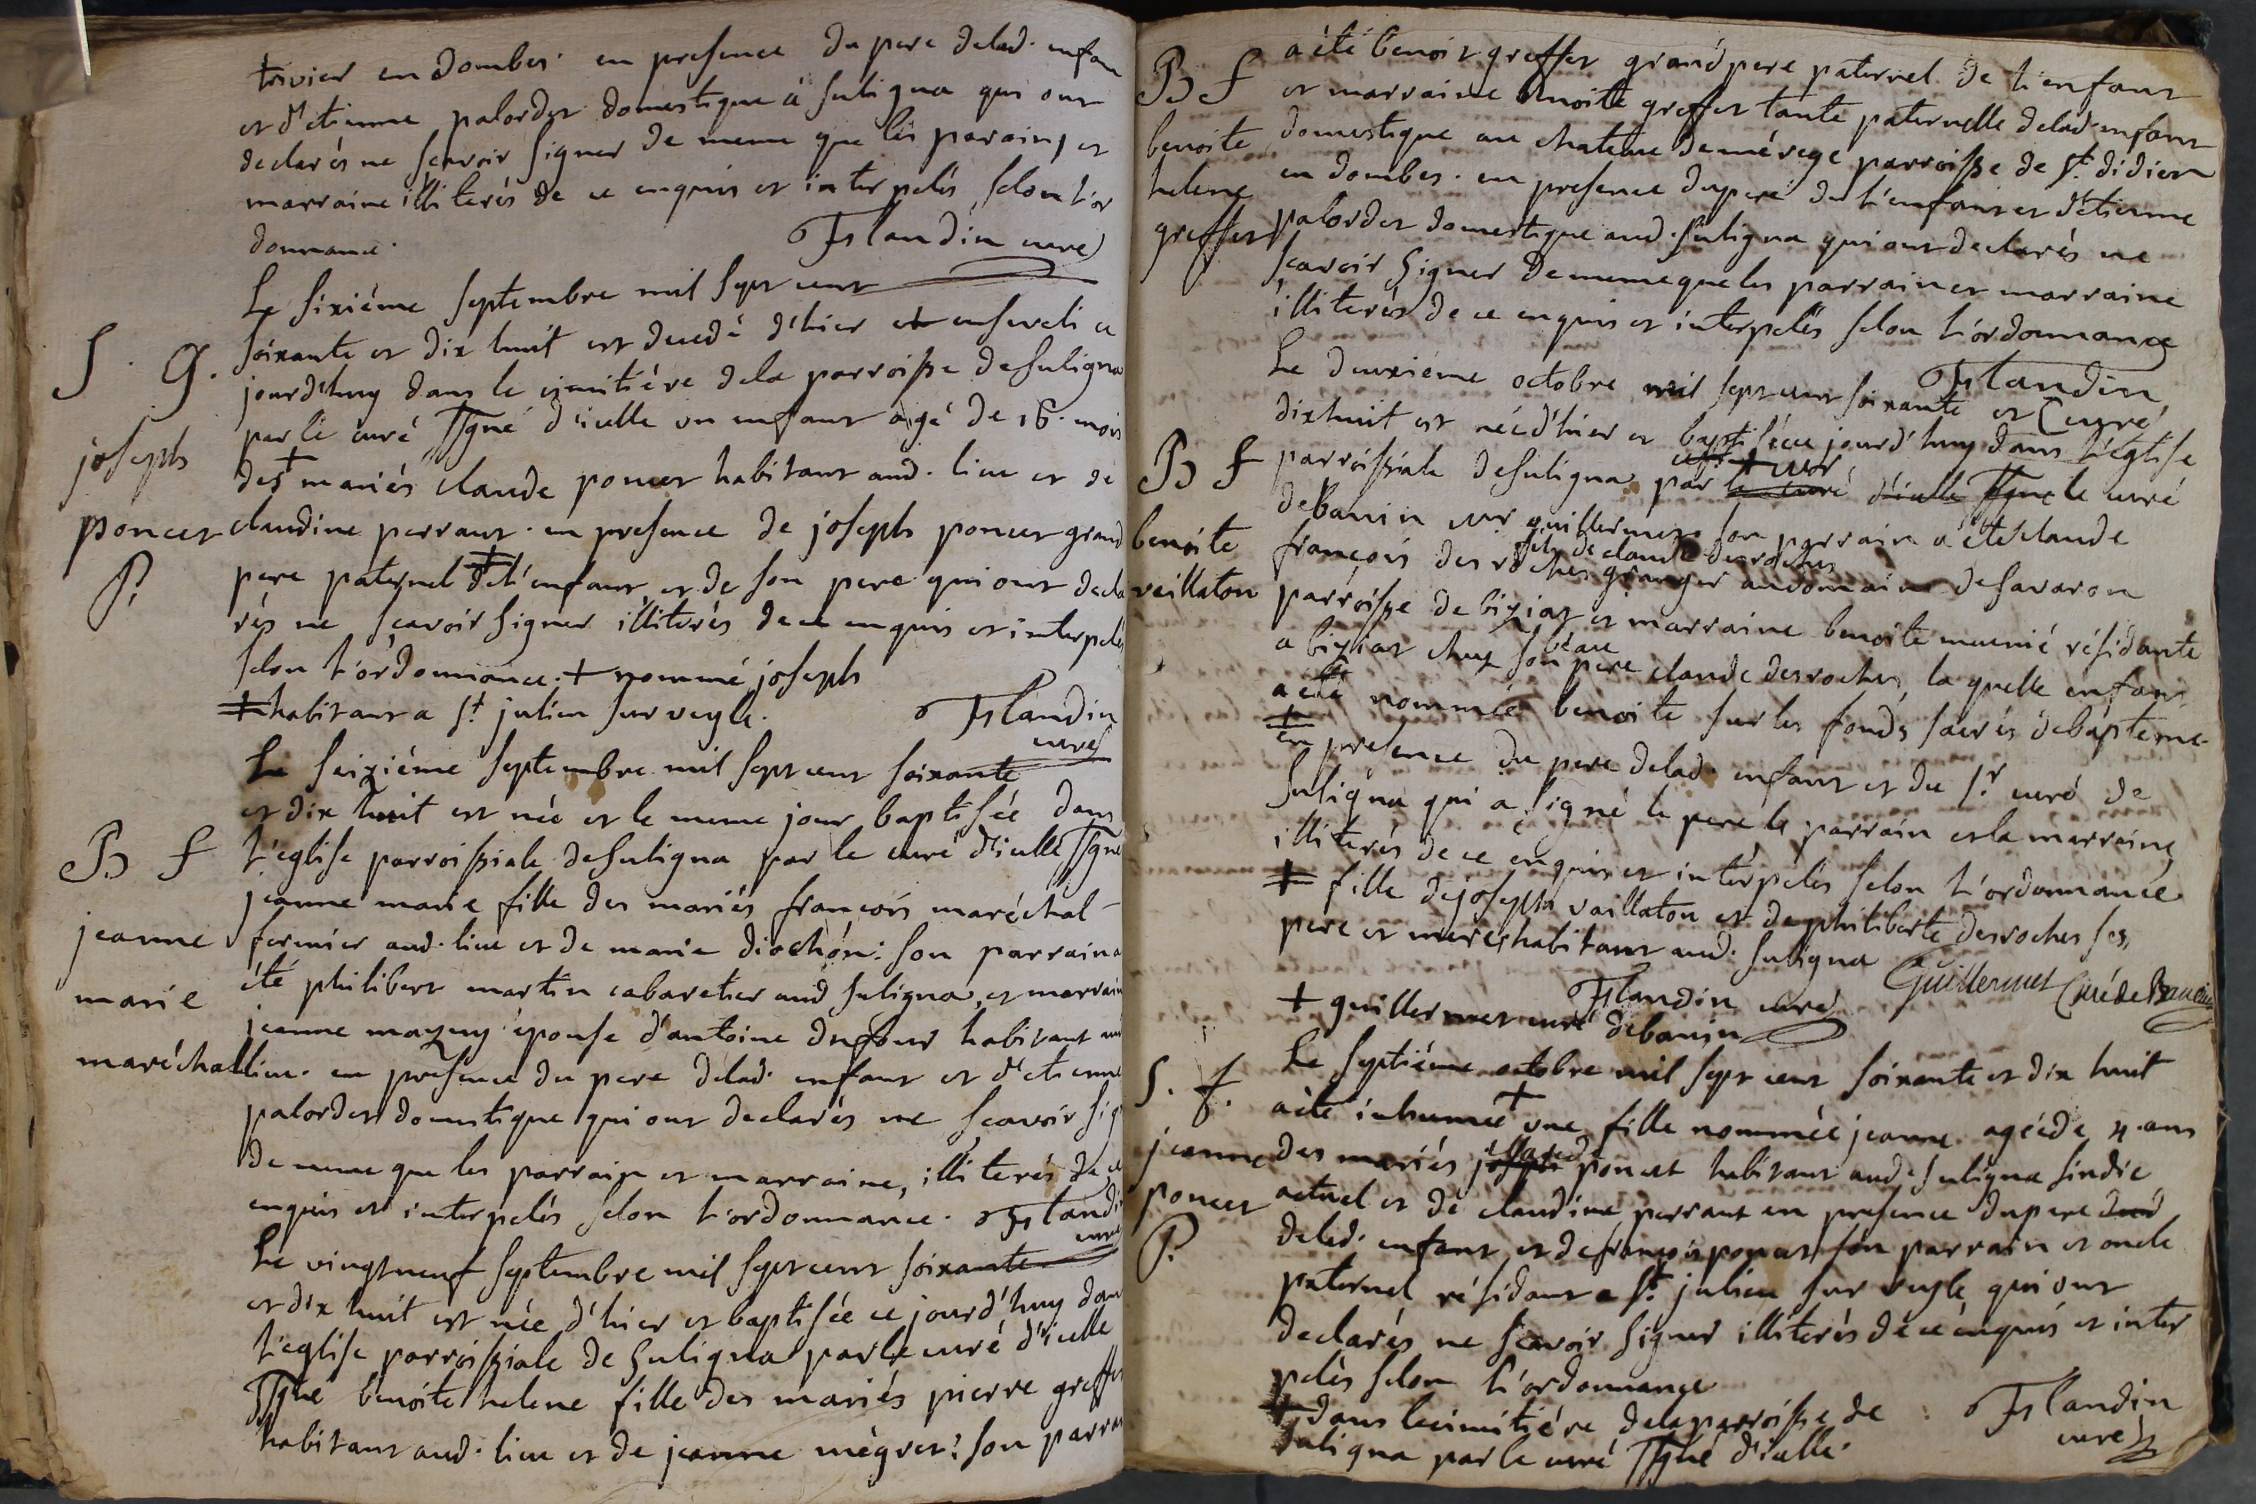 trivier en dombes. en presence du pere delad. enfan
et d'etienne palordet domestique a suligna qui ont
declarés ne scavoir signer de meme que les parains et
marraine illiterés de ce enquis et interpelés, selon l'or
donnance. Flandin curé
Le sixiéme septembre mil sept cent
S. G. soixante et dix huit est decedé d'hier et enseveli ce
jourd'huy dans le cimitiére dela parroisse de suligna
par le curé ssgné d'icelle un enfant agé de 16. mois
joseph des + mariés claude poncet habitant aud. lieu et de
poncet claudine perraut. en presence de joseph poncet grand
P. pere paternel + de l'enfant et de son pere qui ont decla
rés ne sçavoir signer illiterés de ce enquis et interpelés
selon l'ordonnance. + nommé joseph
+ habitant a st. julien sur veyle. Flandin
curé
Le seiziéme septembre mil sept cent soixante
et dix huit est née et le meme jour baptisée dans
B f l'eglise parroissiale de suligna par le curé d'icelle ssgné
jeanne marie fille des mariés françois maréchal
jeanne fermier aud. lieu et de marie diochon: son parrain a
été philibert martin cabaretier aud suligna, et marraine
marie jeanne mazuy épouse d'antoine dufour habitant aud
maréchal lieu. en presence du pere delad. enfant et d'etienne
palordet domestique qui ont declarés ne scavoir sig
de meme que les parrain et marraine, illiterés de ce
enquis et interpelés selon l'ordonnance. Flandi
curé
Le vingtneuf septembre mil sept cent soixante
et dix huit est née d'hier et baptisée ce jourd'huy dans
l'eglise parroissiale de suligna par le curé d'icelle
ssgné benoite helene fille des mariés pierre greffet
habitant aud. lieu et de jeanne mégret: son parrai
B f a été benoit greffet grand pere paternel de l'enfant
et marraine benoite greffet tante paternelle delad. enfant
benoite domestique au chateau de mérege parroisse de st. didier
helene en dombes. en presence du pere de l'enfant et d'etienne
greffet palordet domestique aud. suligna qui ont declarés ne
scavoir signer de meme que les parrain et marraine
illiterés de ce enquis et interpelés selon l'ordonnance
Flandin
curé
Le deuxiéme octobre mil sept cent soixante et
dixhuit est née d'hier et baptisée ce jourd'huy dans l'église
B f parroissiale de suligna par le curé d'icelle ssgné le curé
de banin mr guillermet son parrain a été claude
benoite françois desroches fils de claude desroches granger au domaine de savaron
veillaton parroisse de biziat et marraine benoite mucnié résidante
a biziat chez son beau pere claude desroches, la quelle enfant
a été nommée benoite sur les fonds sacrés de baptéme
+ en presence du pere delad. enfant et du sr. curé de
suligna qui a signé le pere le parrain et la marraine
illiterés de ce enquis et interpelés selon l'ordonnance
+ fille de joseph vaillaton et de philiberte desroches ses
pere et mere habitant aud. suligna
Flandin curé Guillermet Curé de Baneins
+ guillermet curé de banin
Le septiéme octobre mil sept cent soixante et dix huit
S. f. a été inhumée + une fille nommée jeanne agée de 4. ans
jeanne des mariés joseph claude poncet habitant aud. suligna sindic
poncet actuel et de claudine perraut en presence du pere dud
P. delad. enfant et de françois poncet son parrain et oncle
paternel résidant a st. julien sur veyle qui ont
declarés ne scavoir signer illiterés de ce enquis et inter
pelés selon l'ordonnance
+ dans le cimitiére dela parroisse de Flandin
suligna par le curé ssgné d'icelle. curé